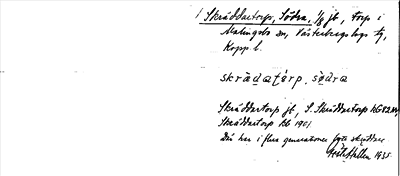 1 Skräddartorp, Södra, 1/8 jb, torp i
Malingsbo sn, Västerbergslags tg,
Kopp. l.
skrädatårp, södra
Skräddartorp jb, S. Skräddartorp
Skräddartorp Kb 1901
Där har i flera generationer skräddare
1935